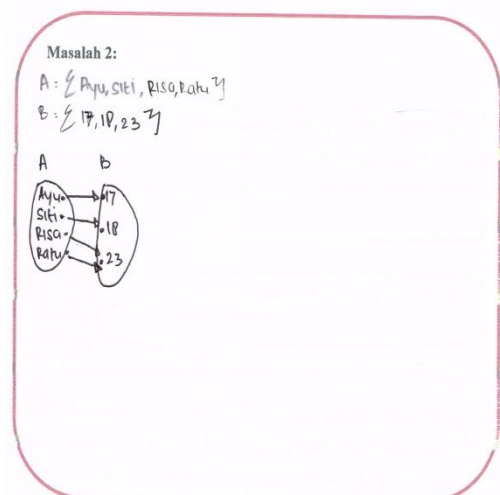 Masalah 2:
A = {Ayu, Siti, Risa, Ratu}
B = {17, 18, 23}
A B
Ayu 17
Siti 18
Risa
Ratu 23